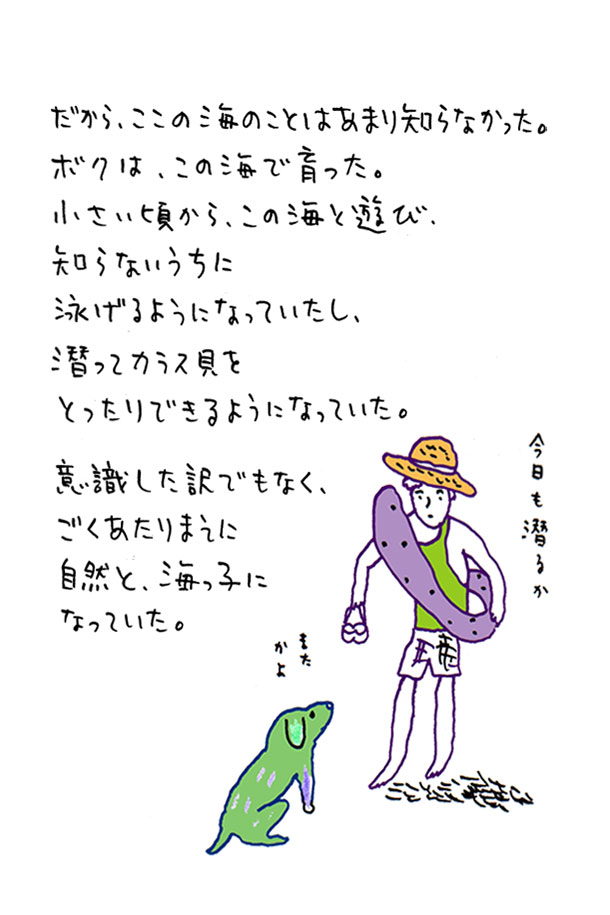 だから、ここの海のことはあまり知らなかった。
ボクは、この海で育った。
小さい頃から、この海と遊び、
知らないうちに
泳げるようになっていたし、
潜ってカラス貝を
とったりできるようになっていた。
意識した訳でもなく、
ごくあたりまえに
自然と、海っ子に
なっていた。
今日も潜るか
また
かよ